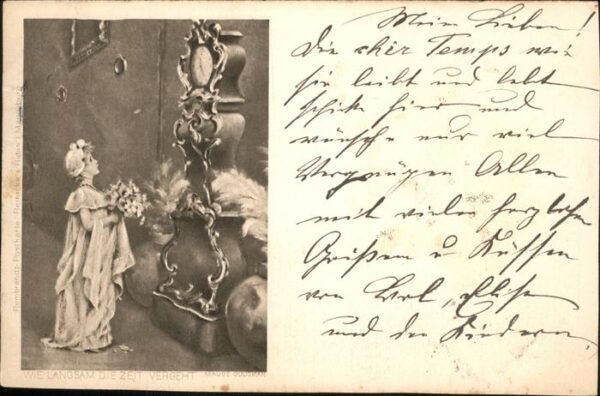 Mein Lieben!
Die chèr Temps wie
sie leibt und lebt
schicke hier und
wünsche nur viel
Vergnügen Allen
mit vielen herzlichen
Grüßen u Küssen
von Karl, Elise
und den Kindern.
WIE LANGSAM DIE ZEIT VERGEHT
Rembrandt-Postkarte